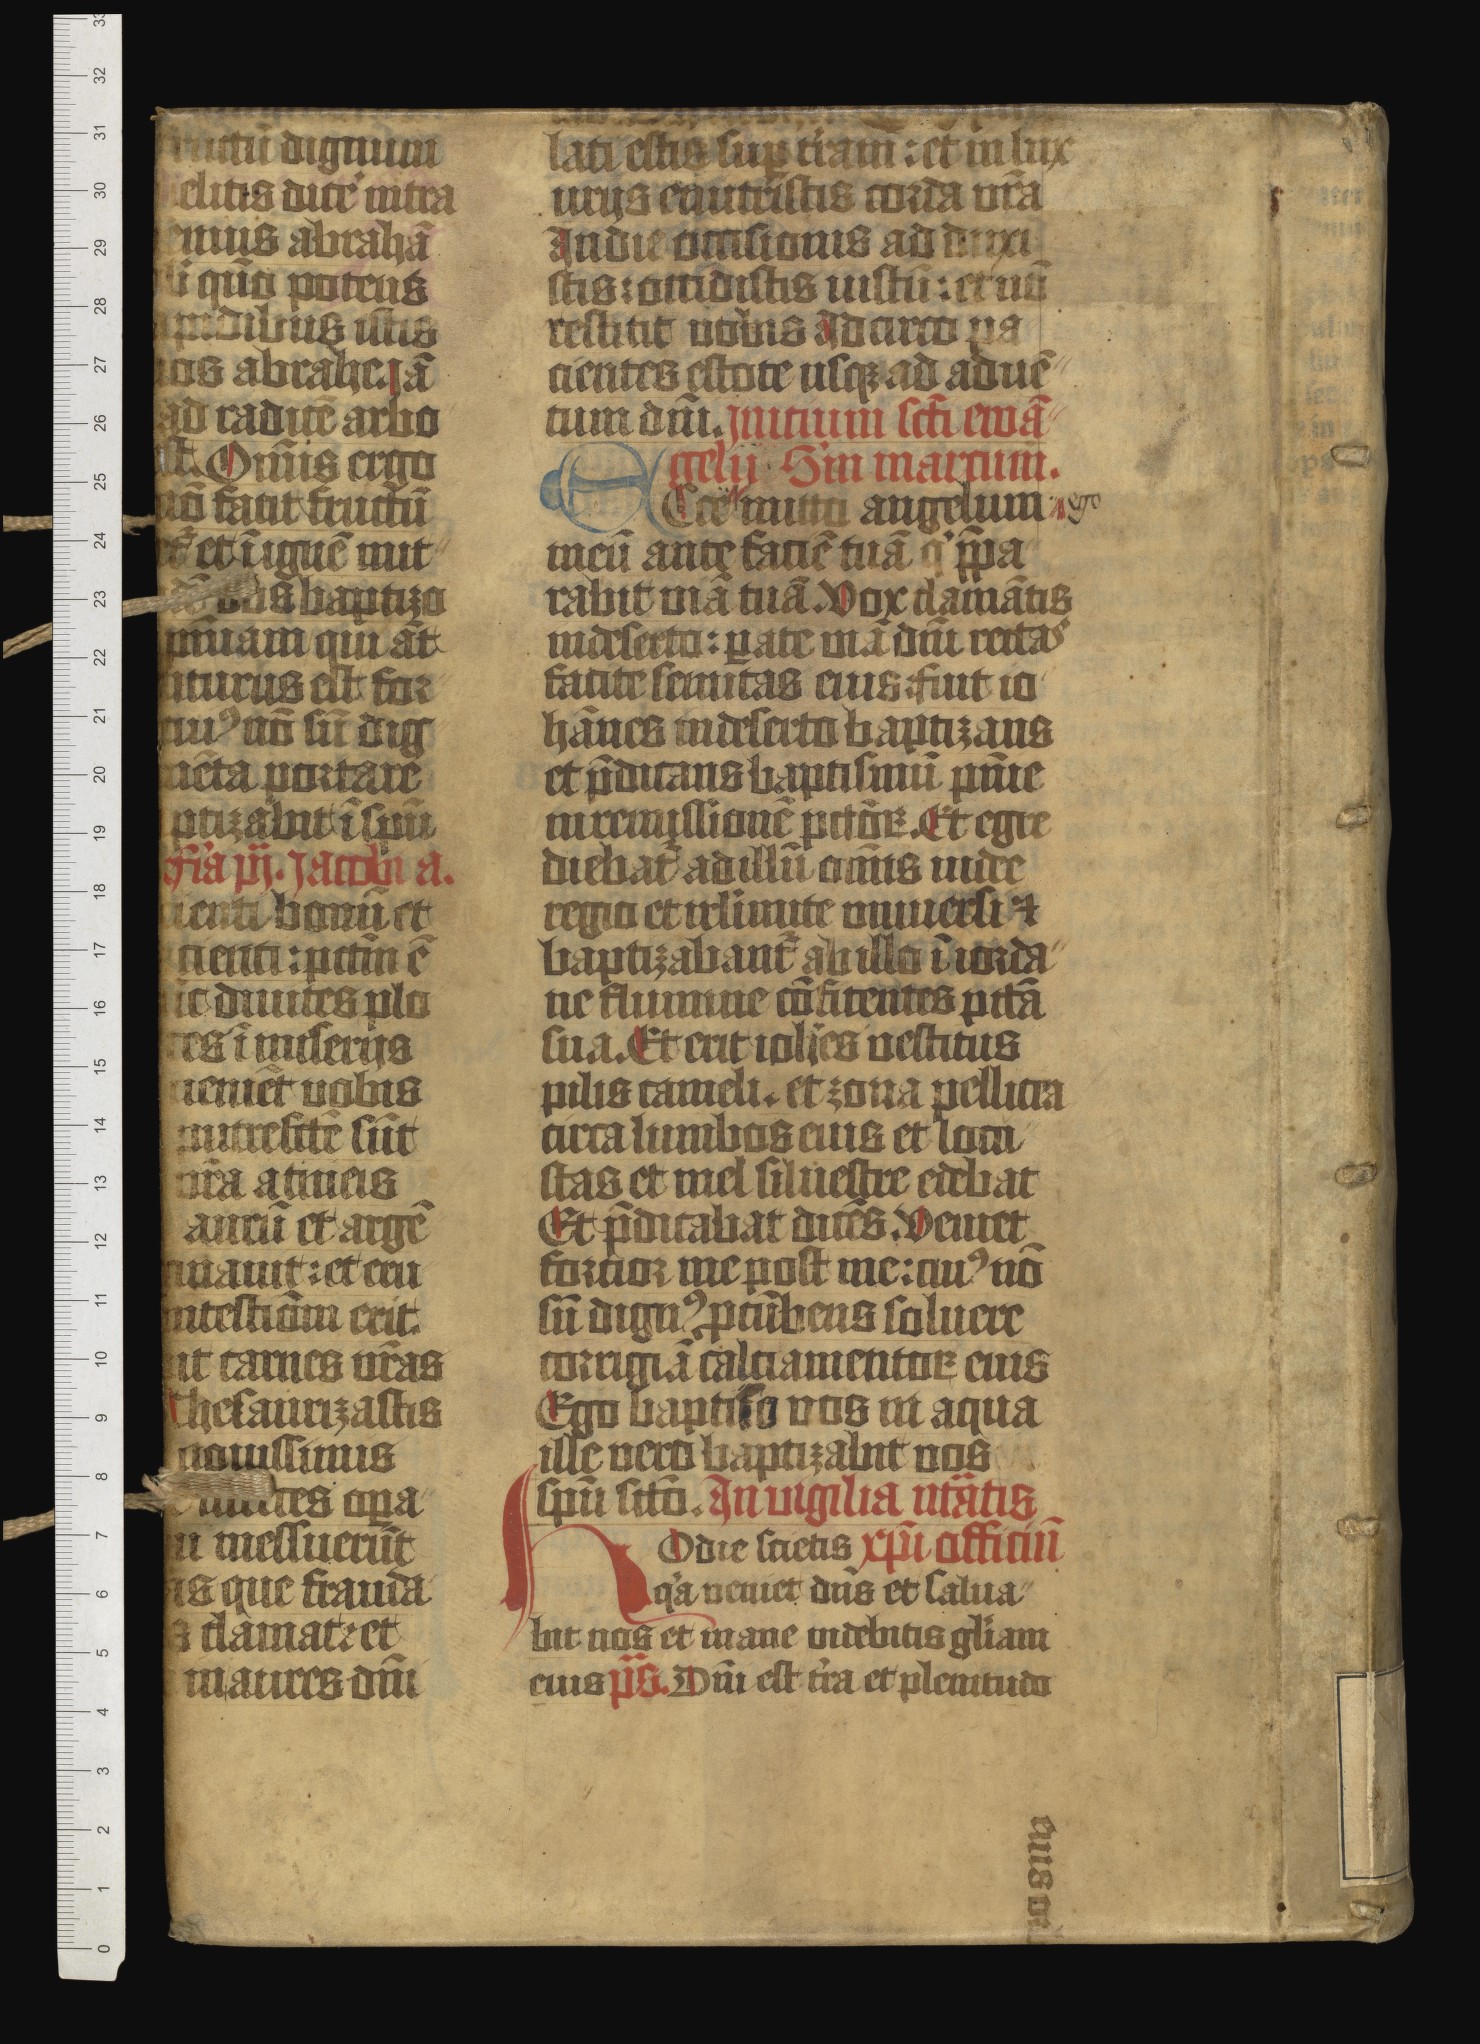 dignum
elitis dice intra
emus abrahā
i qm̄o potens
pidibus istis
os abrahe. Jā
ad radicē arbo
st. Om̄is ergo
nō facit fructū
et īignē mit
vos baptizo
nīam qui āt
nturus est for
cuiꝰ nō sū dig
mēta portare
ptizabit ī spū
fr̄a iij. Jacobi a.
ienti bonū et
cienti: pctm̄ ē
ic diuites plo
tes ī miserijs
ueniēt vobis
putrefctē sūt
vr̄a a tineis
aurū et argē
inauit: et eru
ntestiōm̄ erit.
it carnes vr̄as
thesaurizastis
nouissimis
opa
i messuerūt
is que frauda
clamat: et
in aures dn̄i
lati estis suꝑ tr̄am: et in lux
urijs enutristis corda vr̄a
In die occisionis ad duxi
stis: occidistis iustū: et nō
restitit vobis Id circo pa
cientes estote usqꝫ ad aduē
tum dn̄i. Inicium scī̄ ewā
gelij Scd̄m marcum.
Ecce mitto angelum ego
meū ante faciē tuā qͥ p̄pa
rabit viā tuā. Vox clamātis
in deserto: ꝑate viā dn̄i rectas
facite semitas eius. fuit io
hānes in deserto baptizans
et p̄dicans baptismū pn̄ie
in remissionē pctōꝝ. Et egre
diebat᷑ ad illū om̄is iude
regio et irlimite vniuersi ⁊
baptizabant᷑ ab illo ī iorda
ne flumine cōfitentes pctā
sua. Et erit ioh̄es vestitus
pilis cameli. et zona pellicea
circa lumbos eius et locu
stas et mel siluestre edebat
Et p̄dicabat dicēs. Veniet
forcior me post me: cuiꝰ nō
sū dignꝰ, ꝓcūbens soluere
corrigiā calciamentoꝝ eius
Ego baptiso vos in aqua
ille vero baptizabit vos
spū sctō. In vigilia nātātis
Hodie scietis xp̄i officiū
qͥa veniet dn̄s et salua
bit nos et mane videbitis gl̄iam
eius p̄s. Dn̄i est tr̄a et plenitudo